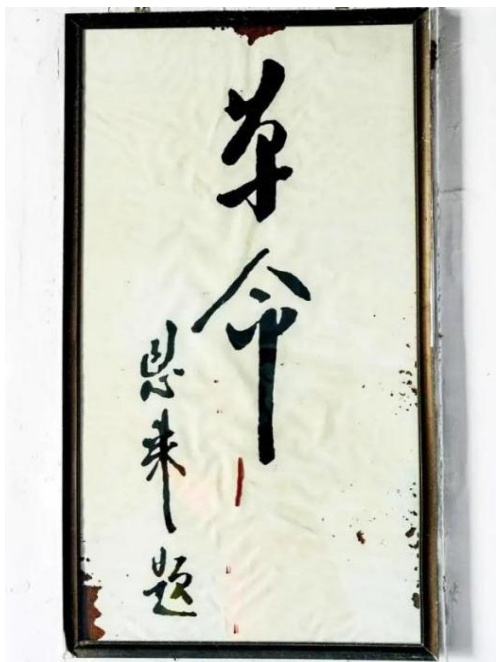 革命
恩来题